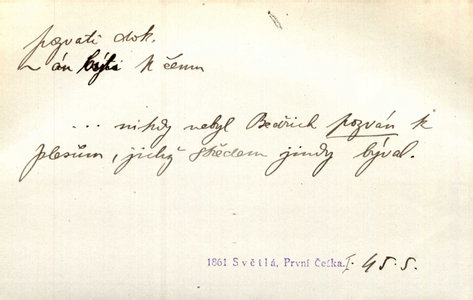 pozvati dok.
~ án býti k čemu
... nikdy nebyl Bedřich pozván k
plesům, jichž středem jindy býval.
1861 Světlá, První Češka. I. 45. 5.